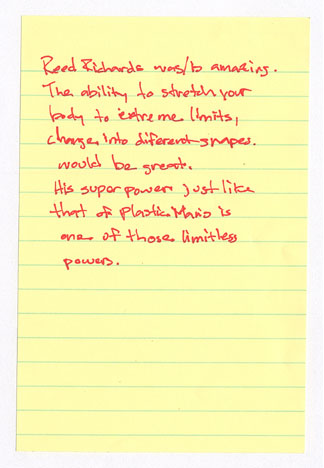 Reed Richards was/b amazing.
The ability to stretch your
body to extreme limits,
change into diferent shapes.
would be great.
His super power just like
that of Plastic Man's is
one of those limitless
powers.